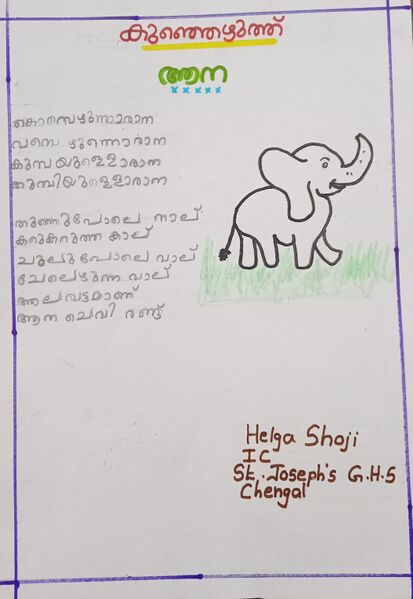 കുഞ്ഞെഴുത്ത്
ആന
കൊമ്പെഴുന്നൊരാന
വമ്പെഴുന്നൊരാന
കുമ്പയുള്ളൊരാന
തുമ്പിയുള്ളൊരാന
തൂണുപോലെ നാല്
കറുകറുത്ത കാല്
ചൂലുപോലെ വാല്
ചേലെഴുന്ന വാല്
ആലവട്ടമാണ്
ആന ചെവി രണ്ട്
Helga Shoji
IC
St. Joseph's G.H.S
Chengal